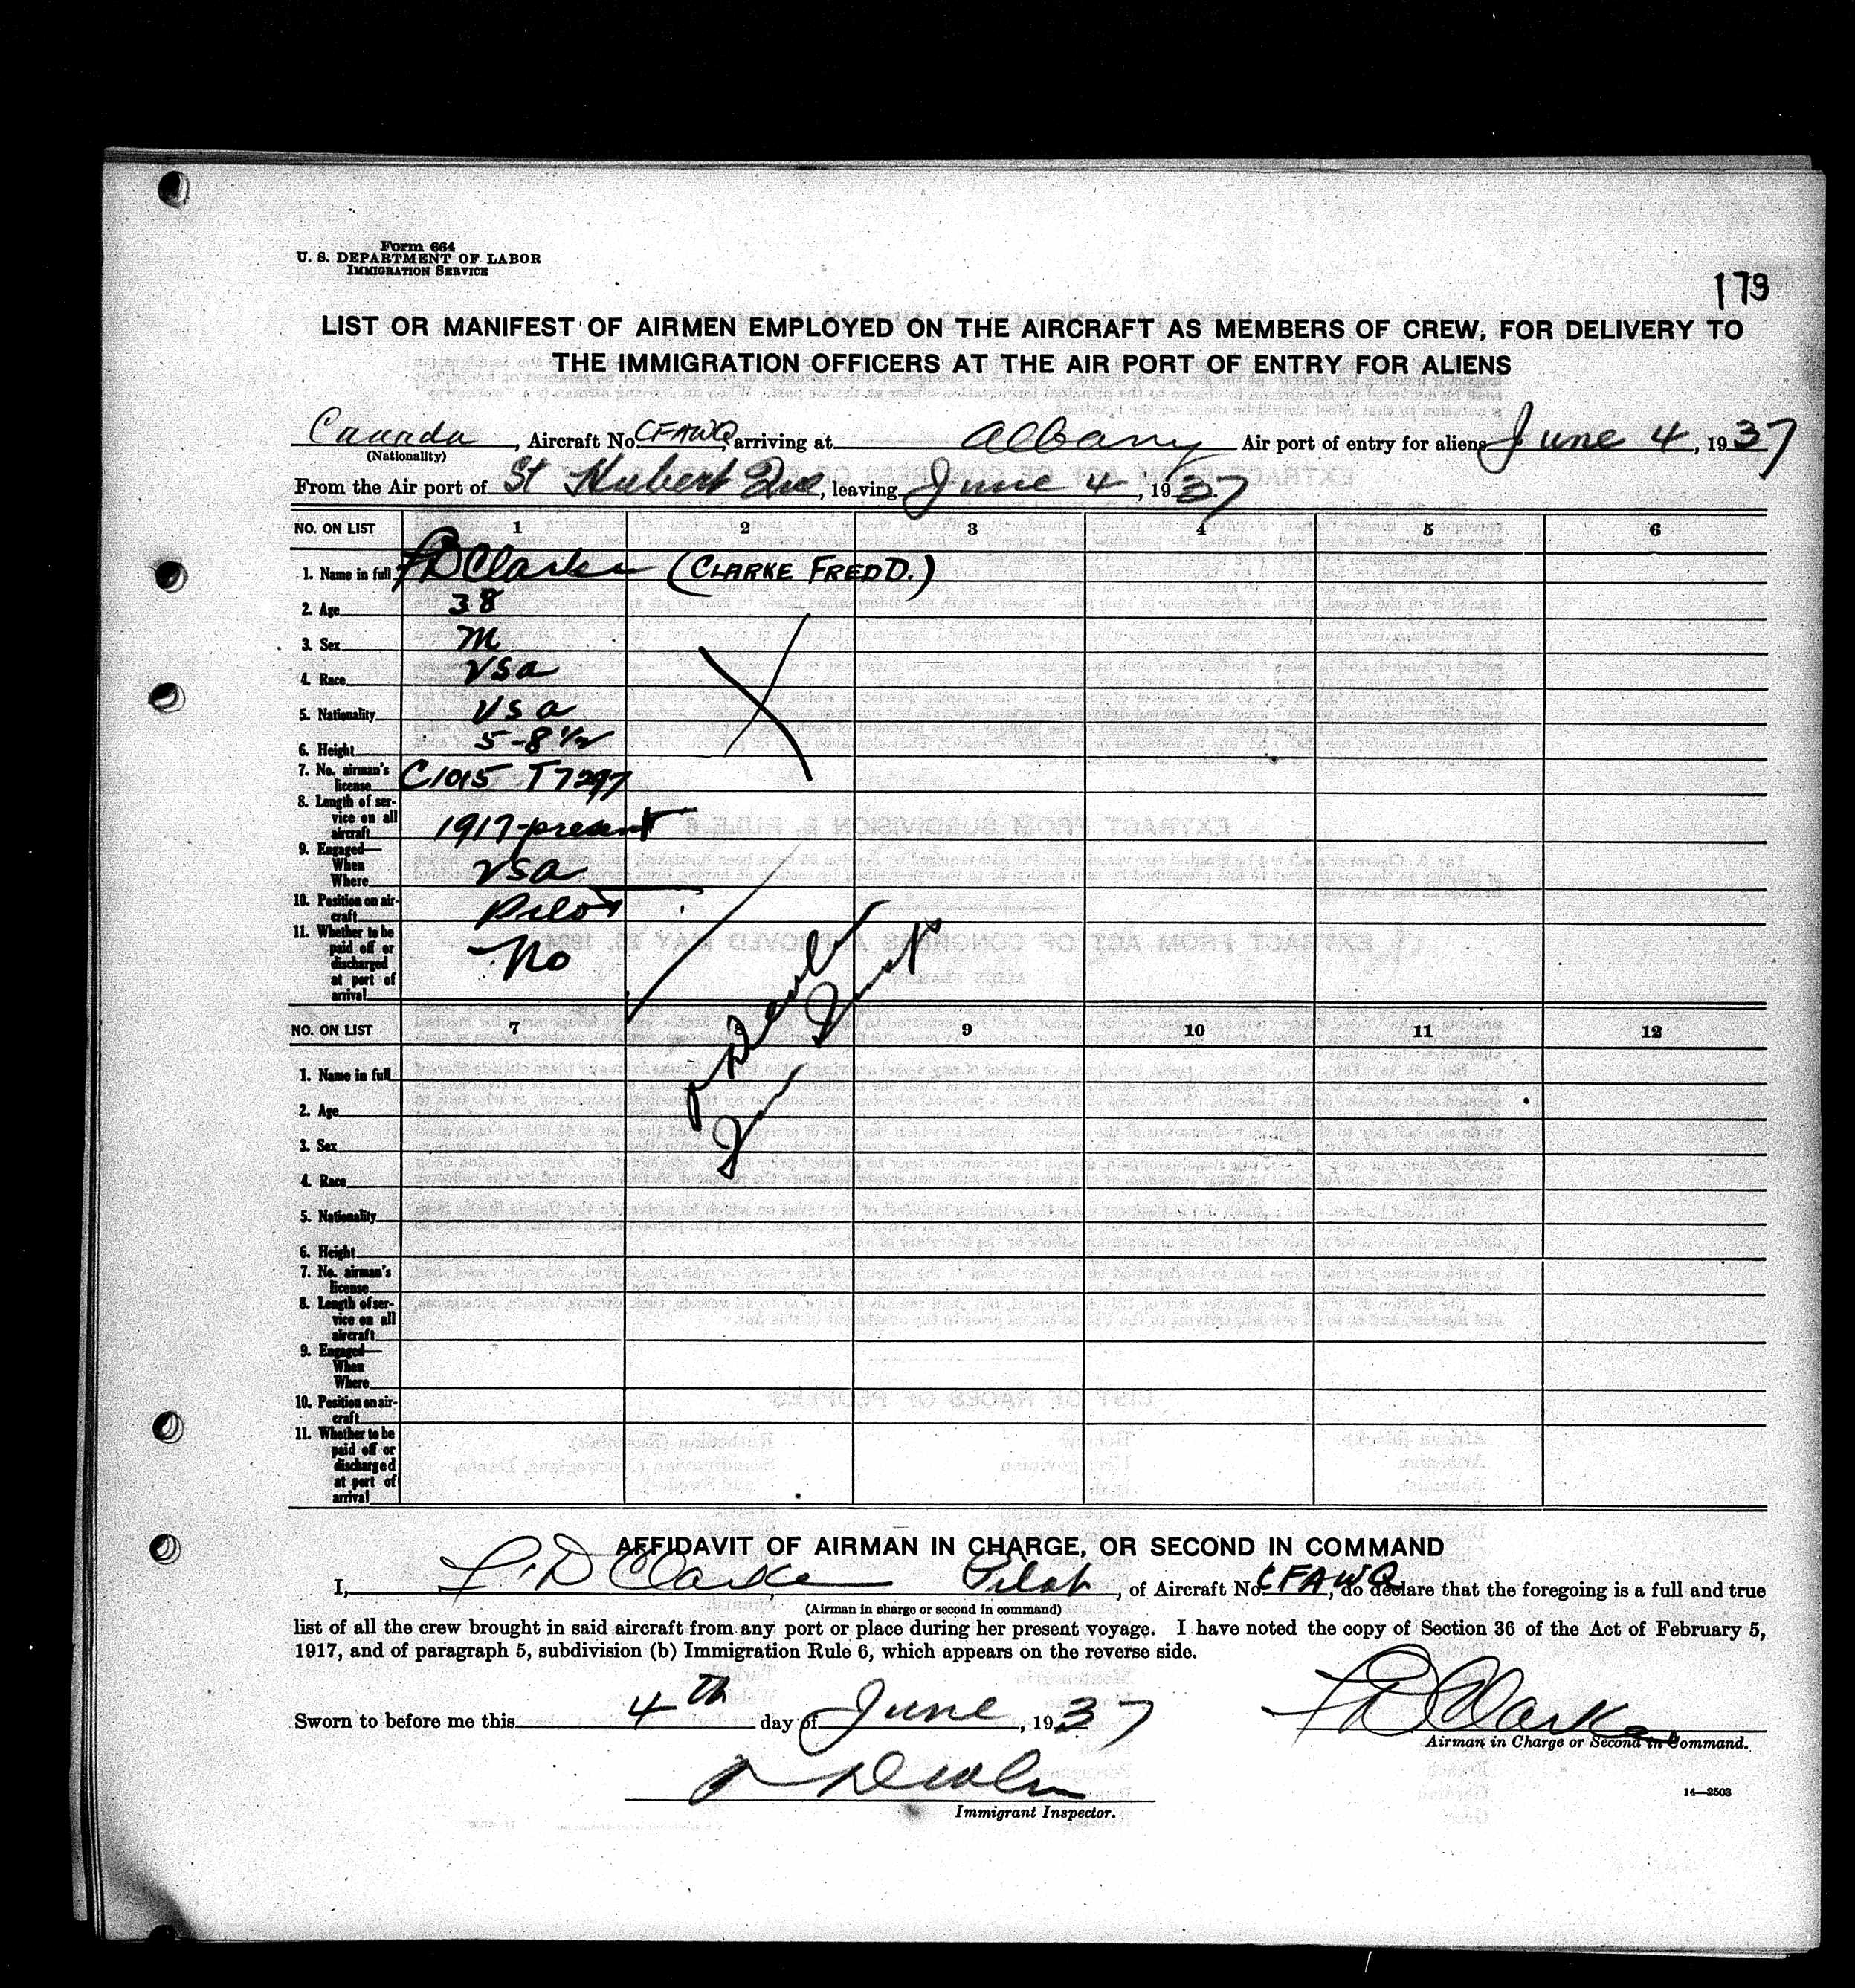 Form 664
U. S. DEPARTMENT OF LABOR
IMMIGRATION SERVICE
179
LIST OR MANIFEST OF AIRMEN EMPLOYED ON THE AIRCRAFT AS MEMBERS OF CREW, FOR DELIVERY TO
THE IMMIGRATION OFFICERS AT THE AIR PORT OF ENTRY FOR ALIENS
Canada, Aircraft No. CFAWQ, arriving at Albany Air port of entry for aliens June 4, 1937
(Nationality)
From the Air port of St Hubert Que, leaving June 4, 1937
NO. ON LIST 1 2 3 4 5 6
1. Name in full FD Clarke (CLARKE FRED D.)
2. Age 38
3. Sex M
4. Race USA
5. Nationality USA
6. Height 5-8 1/2
7. No. airman's license C1015 T7297
8. Length of service on all aircraft 1917-present
9. Engaged— When Where USA
10. Position on aircraft Pilot
11. Whether to be paid off or discharged at port of arrival No
NO. ON LIST 7 8 9 10 11 12
1. Name in full
2. Age
3. Sex
4. Race
5. Nationality
6. Height
7. No. airman's license
8. Length of service on all aircraft
9. Engaged— When Where
10. Position on aircraft
11. Whether to be paid off or discharged at port of arrival
AFFIDAVIT OF AIRMAN IN CHARGE, OR SECOND IN COMMAND
I, F. D Clarke, Pilot, of Aircraft No. CFAWQ, do declare that the foregoing is a full and true
(Airman in charge or second in command)
list of all the crew brought in said aircraft from any port or place during her present voyage. I have noted the copy of Section 36 of the Act of February 5,
1917, and of paragraph 5, subdivision (b) Immigration Rule 6, which appears on the reverse side.
Sworn to before me this 4th day of June, 1937
FD Clarke
Airman in Charge or Second in Command.
Immigrant Inspector.
14—2503